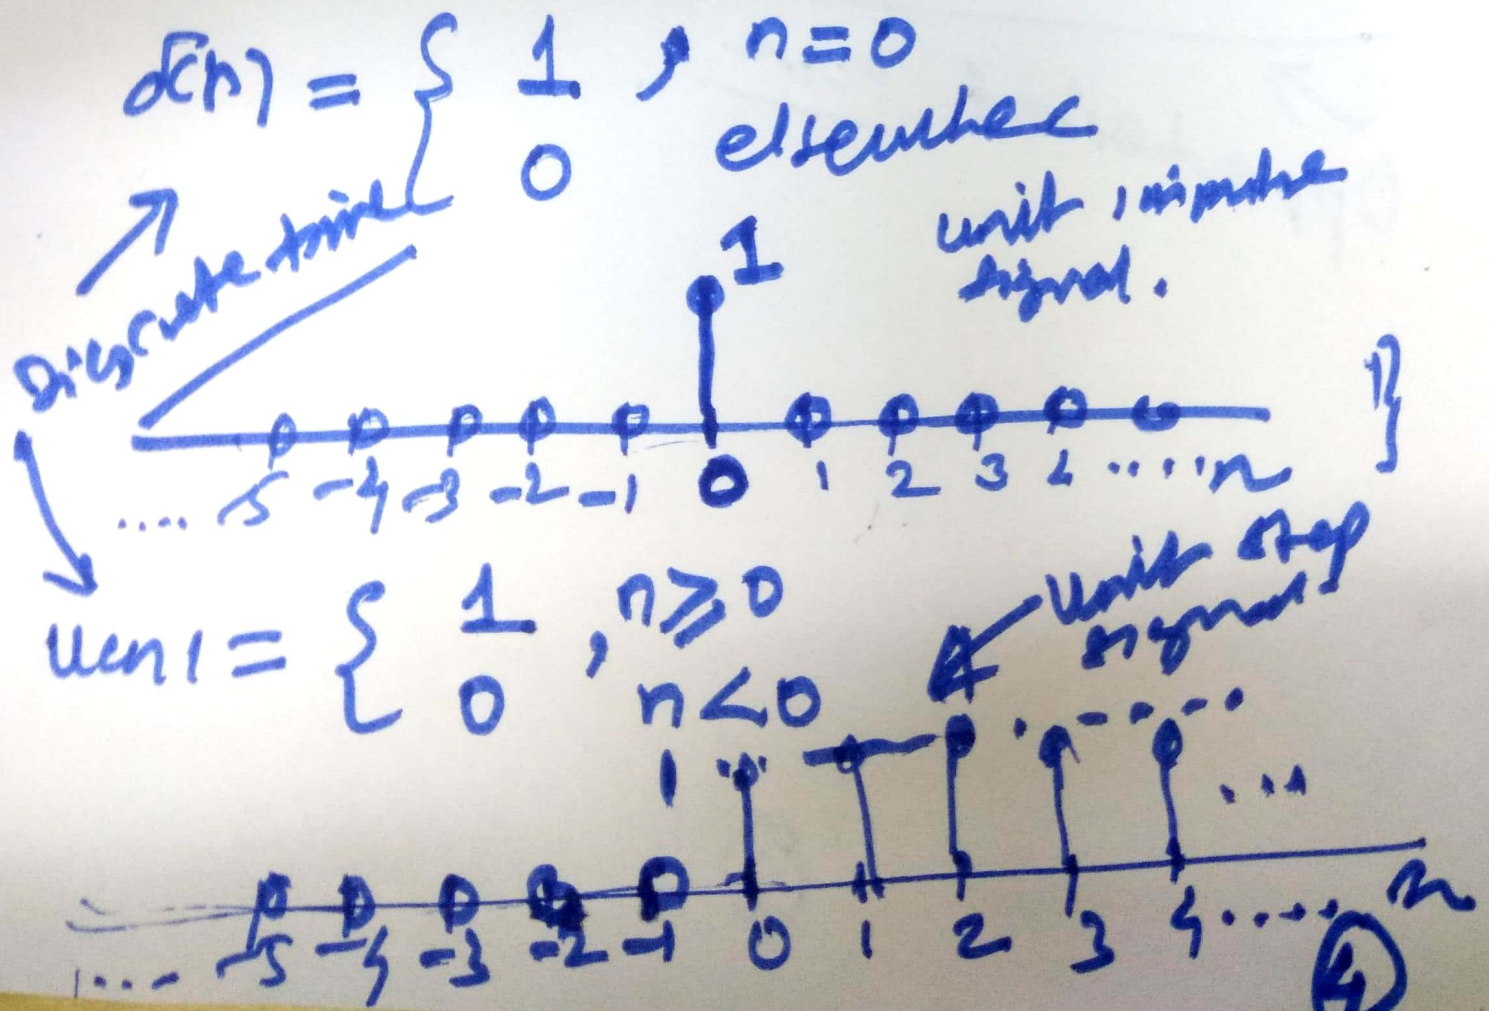 δ(n) = { 1 , n=0
0 elsewhere
Discrete time
unit impulse
signal.
1
.... -5 -4 -3 -2 -1 0 1 2 3 4 ....n
u(n) = { 1 , n≥0
0 n<0
Unit step
signal.
1
...
.... -5 -4 -3 -2 -1 0 1 2 3 4 ..... n
4